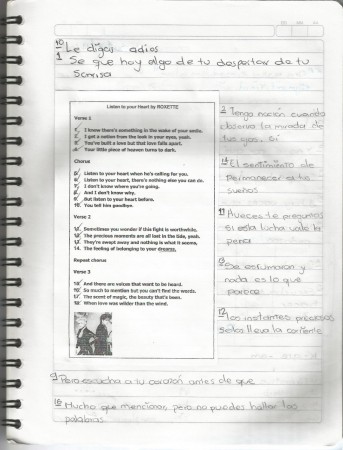 10
Le digas adios
1
Se que hay algo de tu despertar de tu
Sonrisa
Listen to your Heart by ROXETTE
Verse 1
1. I know there's something in the wake of your smile.
2. I get a notion from the look in your eyes, yeah.
3. You've built a love but that love falls apart.
4. Your little piece of heaven turns to dark.
Chorus
5. Listen to your heart when he's calling for you.
6. Listen to your heart, there's nothing else you can do.
7. I don't know where you're going.
8. And I don't know why.
9. But listen to your heart before.
10. You tell him goodbye.
Verse 2
11. Sometimes you wonder if this fight is worthwhile.
12. The precious moments are all lost in the tide, yeah.
13. They're swept away and nothing is what it seems,
14. The feeling of belonging to your dreams.
Repeat chorus
Verse 3
15. And there are voices that want to be heard.
16. So much to mention but you can't find the words.
17. The scent of magic, the beauty that's been.
18. When love was wilder than the wind.
2 Tengo noción cuando
observo la mirada de
tus ojos, si
14 El sentimiento de
permanecer a tus
sueños
11 Aveces te preguntas
si esta lucha vale la
pena
13 Se esfumaron y
nada es lo que
parece
12 Los instantes preciosos
se los lleva la corriente
9 Pero escucha a tu corazón antes de que
16 Mucho que mencionar, pero no puedes hallar las
palabras